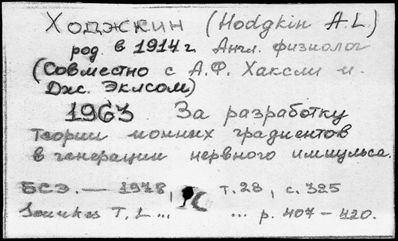 Ходжкин (Hodgkin A.L.)
род. в 1914 г. Англ. физиолог
(Совместно с А.Ф. Хаксли и
Дж. Экклсом)
1963 За разработку
теории ионных градиентов
в генерации нервного импульса.
БСЭ. — 1978, т. 28, с. 325
T. L ... ... p. 407 — 420.